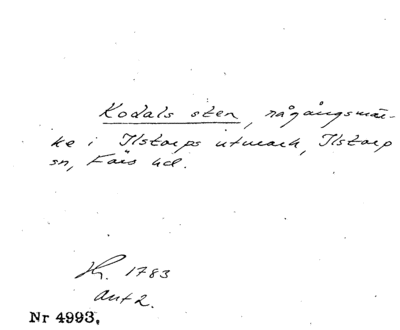 Kodals sten, rågångsmär-
ke i Ilstorps utmark, Ilstorp
sn, Färs hd.
Hr. 1783
ant 2.
Nr 4993.